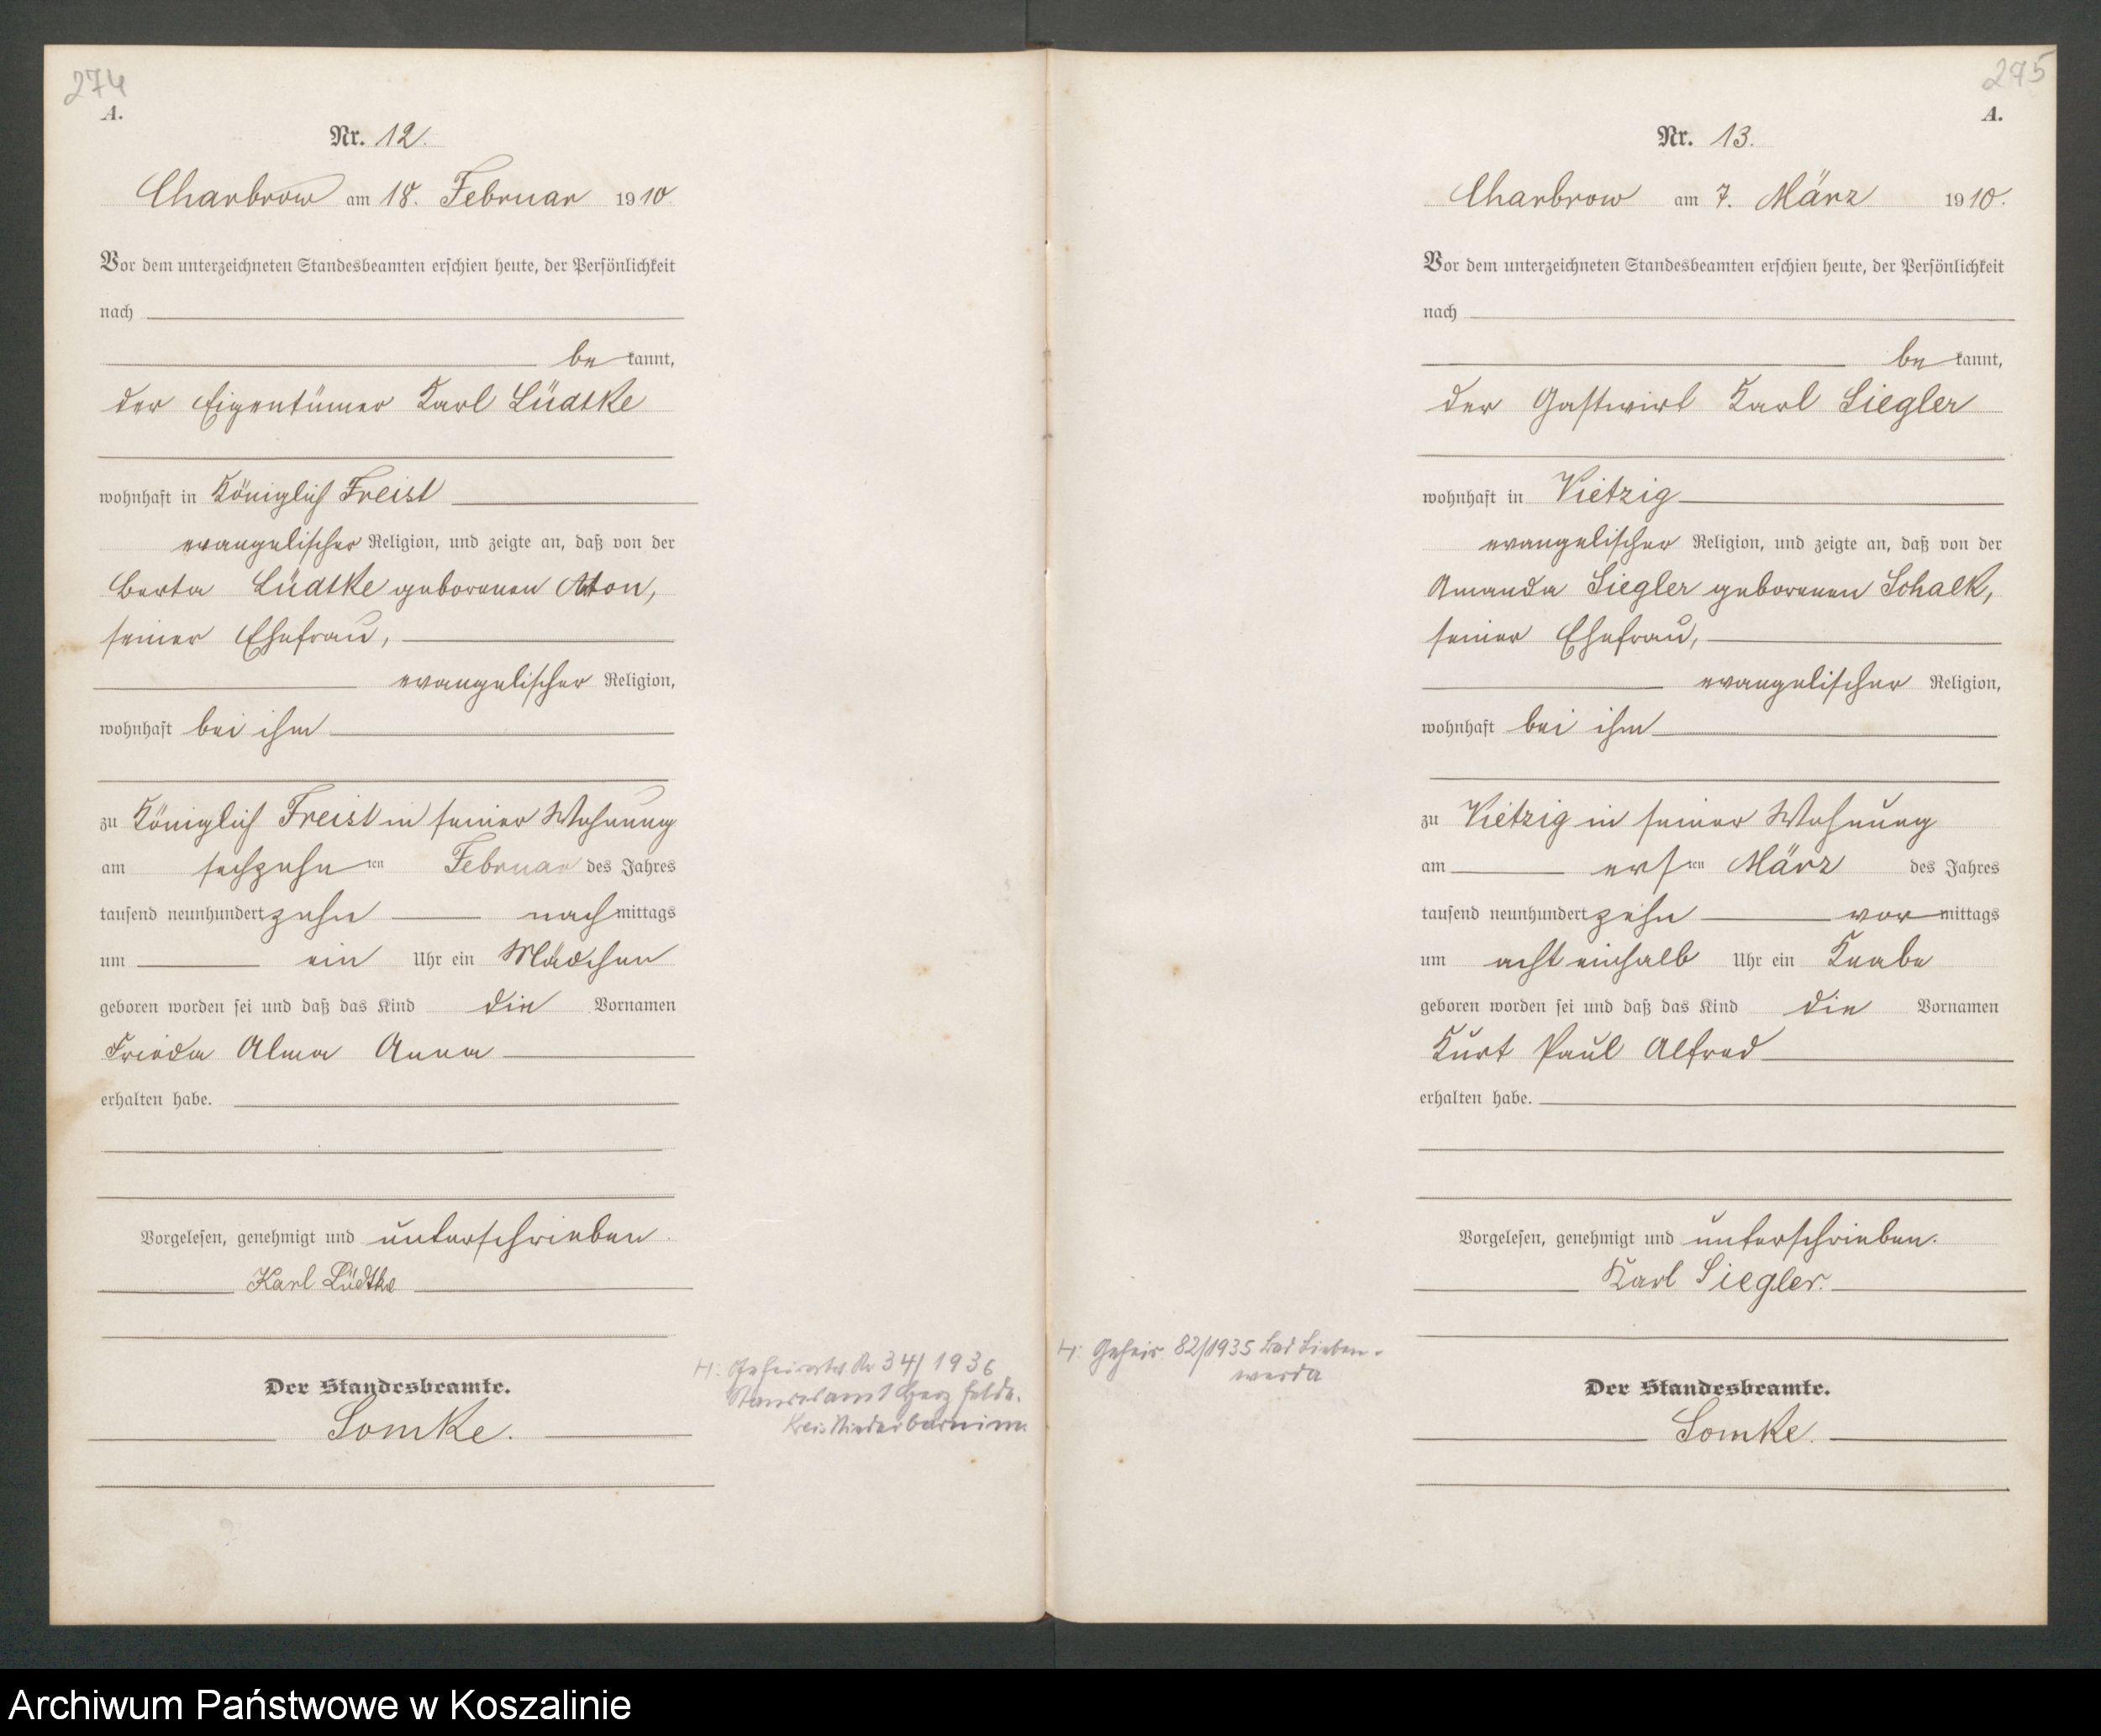 274
A.
Nr. 12.
Charbrow am 18. Februar 1910
Vor dem unterzeichneten Standesbeamten erschien heute, der Persönlichkeit
nach
be kannt,
der Eigentümer Karl Lüdtke
wohnhaft in Königlich Freist
evangelischer Religion, und zeigte an, daß von der
Berta Lüdtke geborenen
seiner Ehefrau,
evangelischer Religion,
wohnhaft bei ihm
zu Königlich Freist in seiner Wohnung
am sechzehnten Februar des Jahres
tausend neunhundert zehn nachmittags
um ein Uhr ein Mädchen
geboren worden sei und daß das Kind die Vornamen
Frieda Alma Anna
erhalten habe.
Vorgelesen, genehmigt und unterschrieben.
Karl Lüdtke
Der Standesbeamte.
Somke.
H: Geheiratet Nr 34/1936
Standesamt Herzfelde.
Kreis Niederbarnim.
275
A.
Nr. 13.
Charbrow am 7. März 1910.
Vor dem unterzeichneten Standesbeamten erschien heute, der Persönlichkeit
nach
be kannt,
der Gastwirt Karl Siegler
wohnhaft in Vietzig
evangelischer Religion, und zeigte an, daß von der
Amanda Siegler geborenen Schalk,
seiner Ehefrau,
evangelischer Religion,
wohnhaft bei ihm
zu Vietzig in seiner Wohnung
am ersten März des Jahres
tausend neunhundert zehn vormittags
um acht einhalb Uhr ein Knabe
geboren worden sei und daß das Kind die Vornamen
Kurt Paul Alfred
erhalten habe.
Vorgelesen, genehmigt und unterschrieben.
Karl Siegler.
H: Geheir. 82/1935 Bad Lieben-
werda
Der Standesbeamte.
Somke.
Archiwum Państwowe w Koszalinie